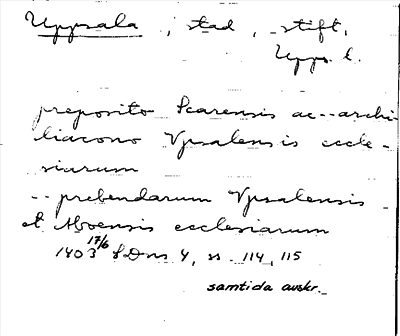 Uppsala, stad, stift,
Upps. l.
preposito Scarensis ac -- archi-
diacono Vpsalensis eccle-
siarum
-- prebendarum Vpsalensis
et Aboensis ecclesiarum
1403 17/6 SDns 4, s. 114, 115
samtida avskr.